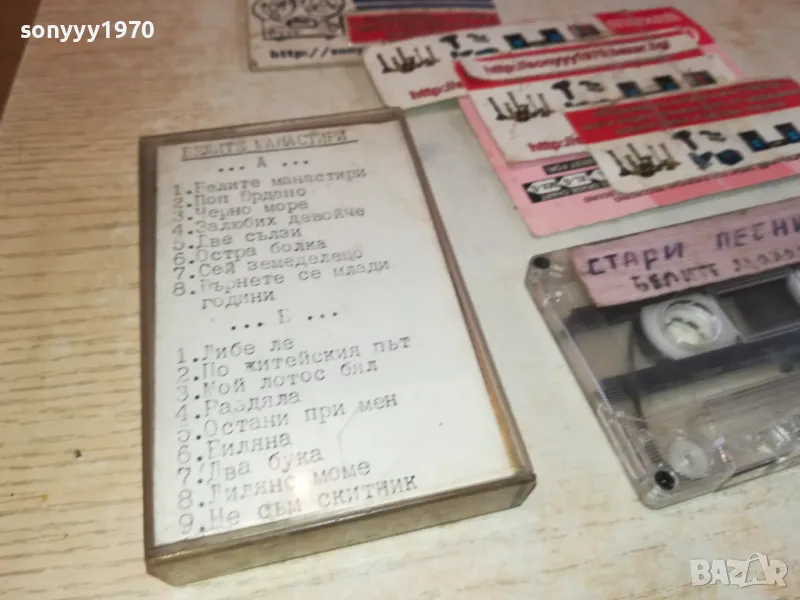 sonyyy1970
БЕЛИТЕ МАНАСТИРИ
... А ...
1.Белите манастири
2.Поп Йрдано
3.Черно море
4.Залюбих девойче
5.Две сълзи
6.Остра болка
7.Сей земеделецо
8.Върнете се млади
години
... Б ...
1.Либе ле
2.По житейския път
3.Мой лотос бял
4.Раздяла
5.Остани при мен
6.Биляна
7.Два бука
8.Лиляно моме
9.Не съм скитник
http://sonyyy1970.bazar.bg/
СТАРИ ПЕСНИ
БЕЛИТЕ
BAZAR